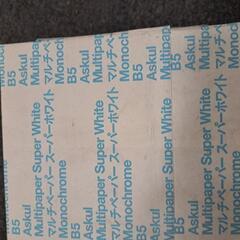 Monochrome
B5
Askul
Multipaper Super White
マルチペーパー スーパーホワイト
Monochrome
B5
Askul
Multipaper Super White
マルチペーパー スーパーホワイト
Monochrome
B5
Askul
Multipaper Super White
マルチペーパー スーパーホワイト
Monochrome
B5
Askul
Multipaper Super White
マルチペーパー スーパーホワイト
Monochrome
B5